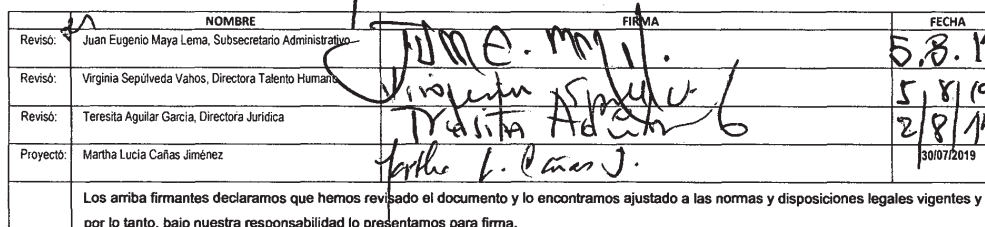 NOMBRE FIRMA FECHA
Revisó: Juan Eugenio Maya Lema, Subsecretario Administrativo 5.8.
Revisó: Virginia Sepúlveda Vahos, Directora Talento Humano Virginia 5/8/19
Revisó: Teresita Aguilar García, Directora Jurídica Teresita 2/8/19
Proyectó: Martha Lucía Cañas Jiménez Martha L. Cañas J. 30/07/2019
Los arriba firmantes declaramos que hemos revisado el documento y lo encontramos ajustado a las normas y disposiciones legales vigentes y
por lo tanto, bajo nuestra responsabilidad lo presentamos para firma.